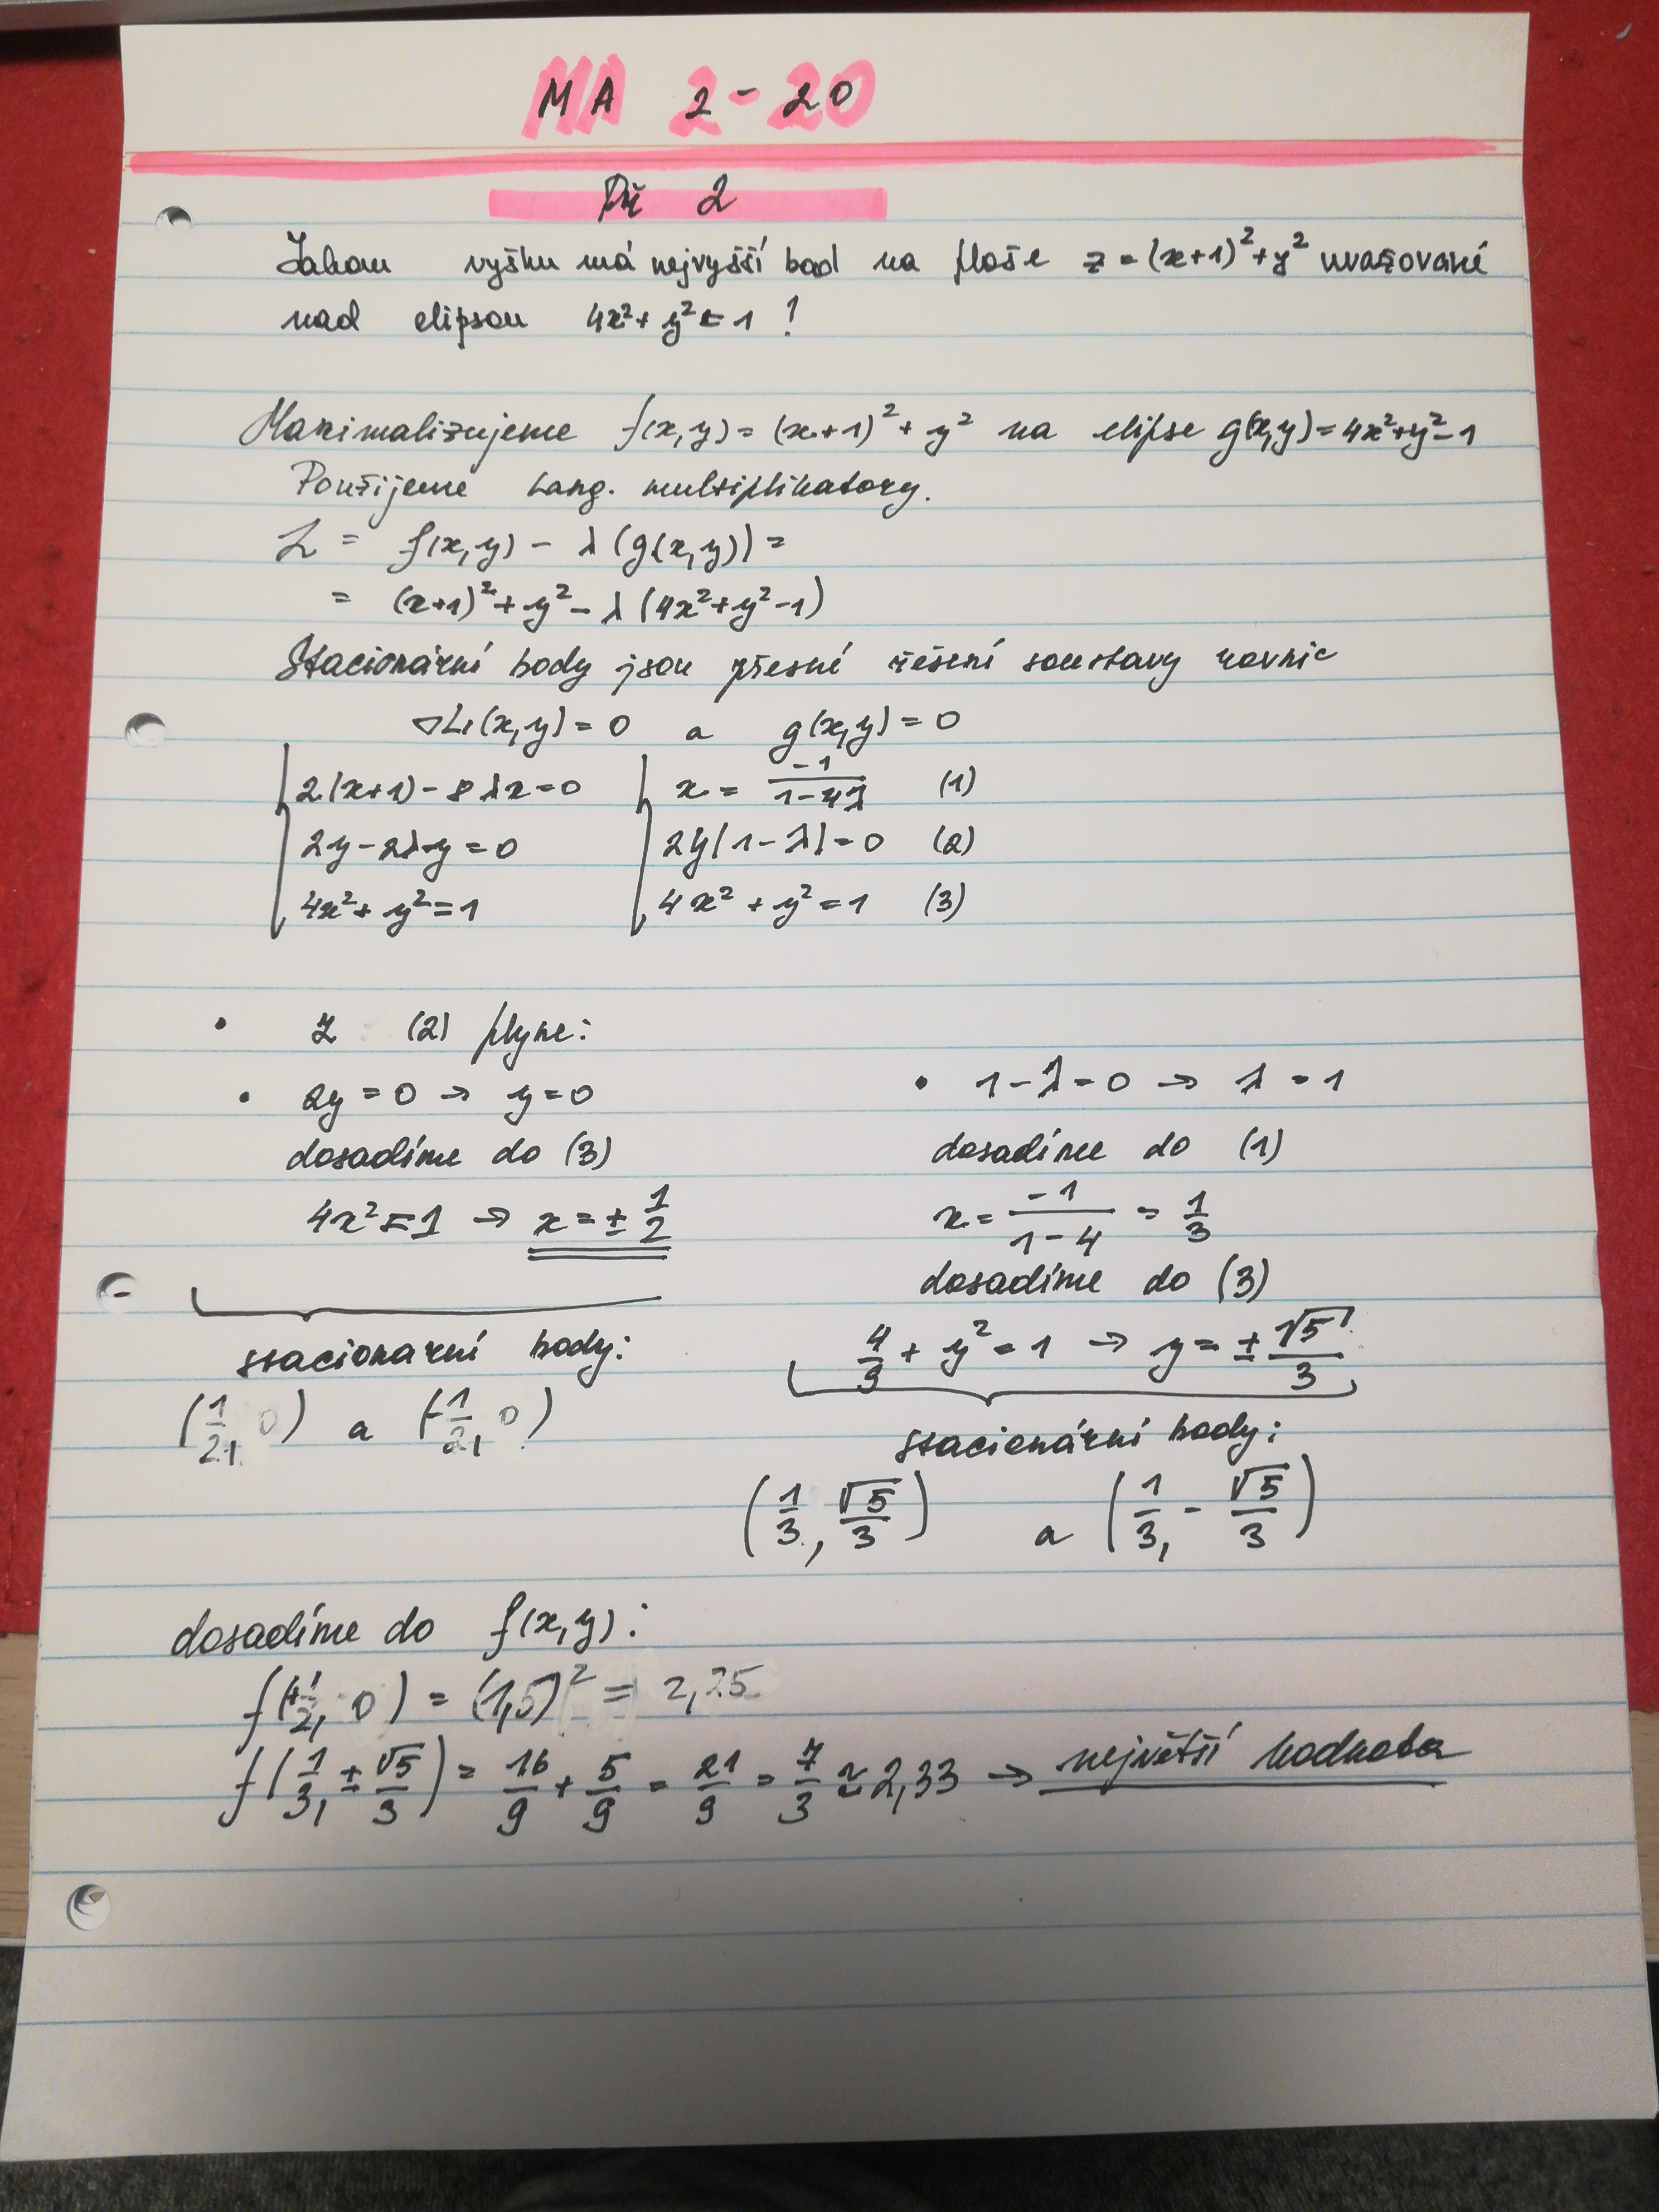 MA 2-20
Př 2
Jakou výšku má nejvyšší bod na ploše z = (x+1)² + y² uvažované
nad elipsou 4x² + y² = 1 ?
Maximalizujeme f(x,y) = (x+1)² + y² na elipse g(x,y) = 4x²+y²-1
Použijeme Lang. multiplikatory.
L = f(x,y) - λ (g(x,y)) =
= (x+1)² + y² - λ (4x²+y²-1)
Stacionární body jsou přesné řešení soustavy rovnic
∇L(x,y) = 0 a g(x,y) = 0
2(x+1) - 8λx = 0 x = -1/(1-4λ) (1)
2y - 2λy = 0 2y(1-λ) = 0 (2)
4x² + y² = 1 4x² + y² = 1 (3)
• Z (2) plyne:
• 2y = 0 → y = 0
dosadíme do (3)
4x² = 1 → x = ± 1/2
stacionarní body:
(1/2, 0) a (-1/2, 0)
• 1-λ = 0 → λ = 1
dosadíme do (1)
x = -1/(1-4) = 1/3
dosadíme do (3)
4/9 + y² = 1 → y = ± √5/3
stacionární body:
(1/3, √5/3) a (1/3, - √5/3)
dosadíme do f(x,y):
f(±1/2, 0) = (1,5)² = 2,25
f(1/3, ± √5/3) = 16/9 + 5/9 = 21/9 = 7/3 ≈ 2,33 → největší hodnota